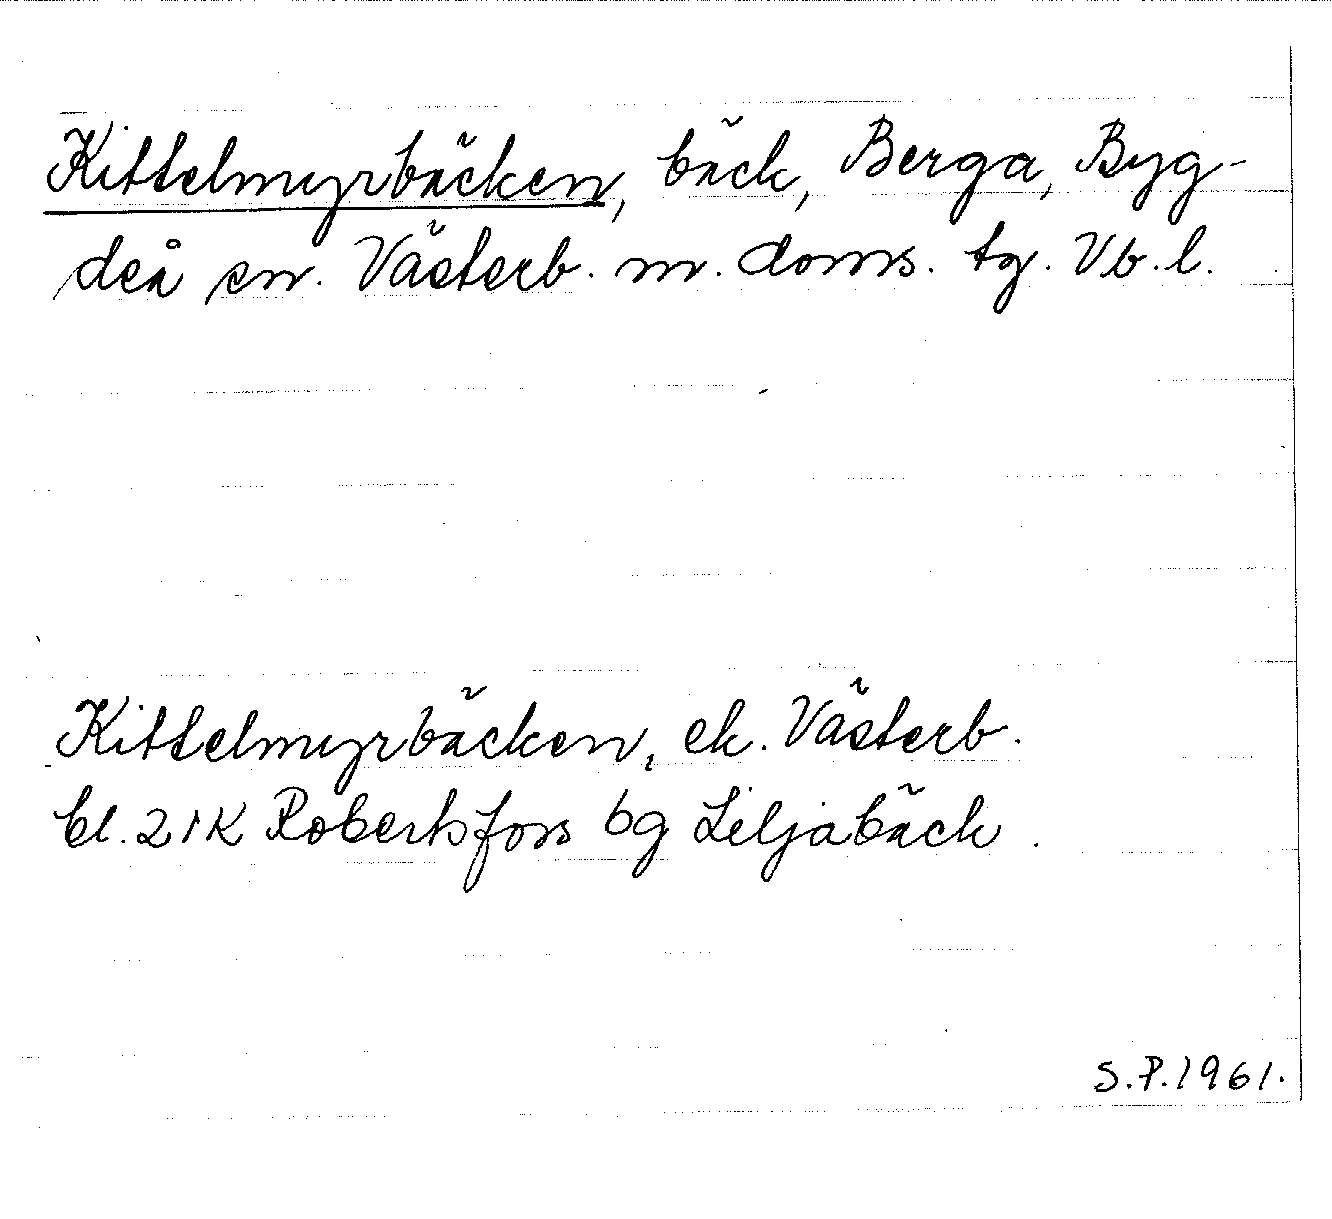 Kittelmyrbäcken, bäck, Berga, Byg-
deå sn. Västerb. m. doms. tg. Vb. l.
Kittelmyrbäcken, ek. Västerb.
bl. 21K Robertsfors bg Liljabäck.
S.P.1961.